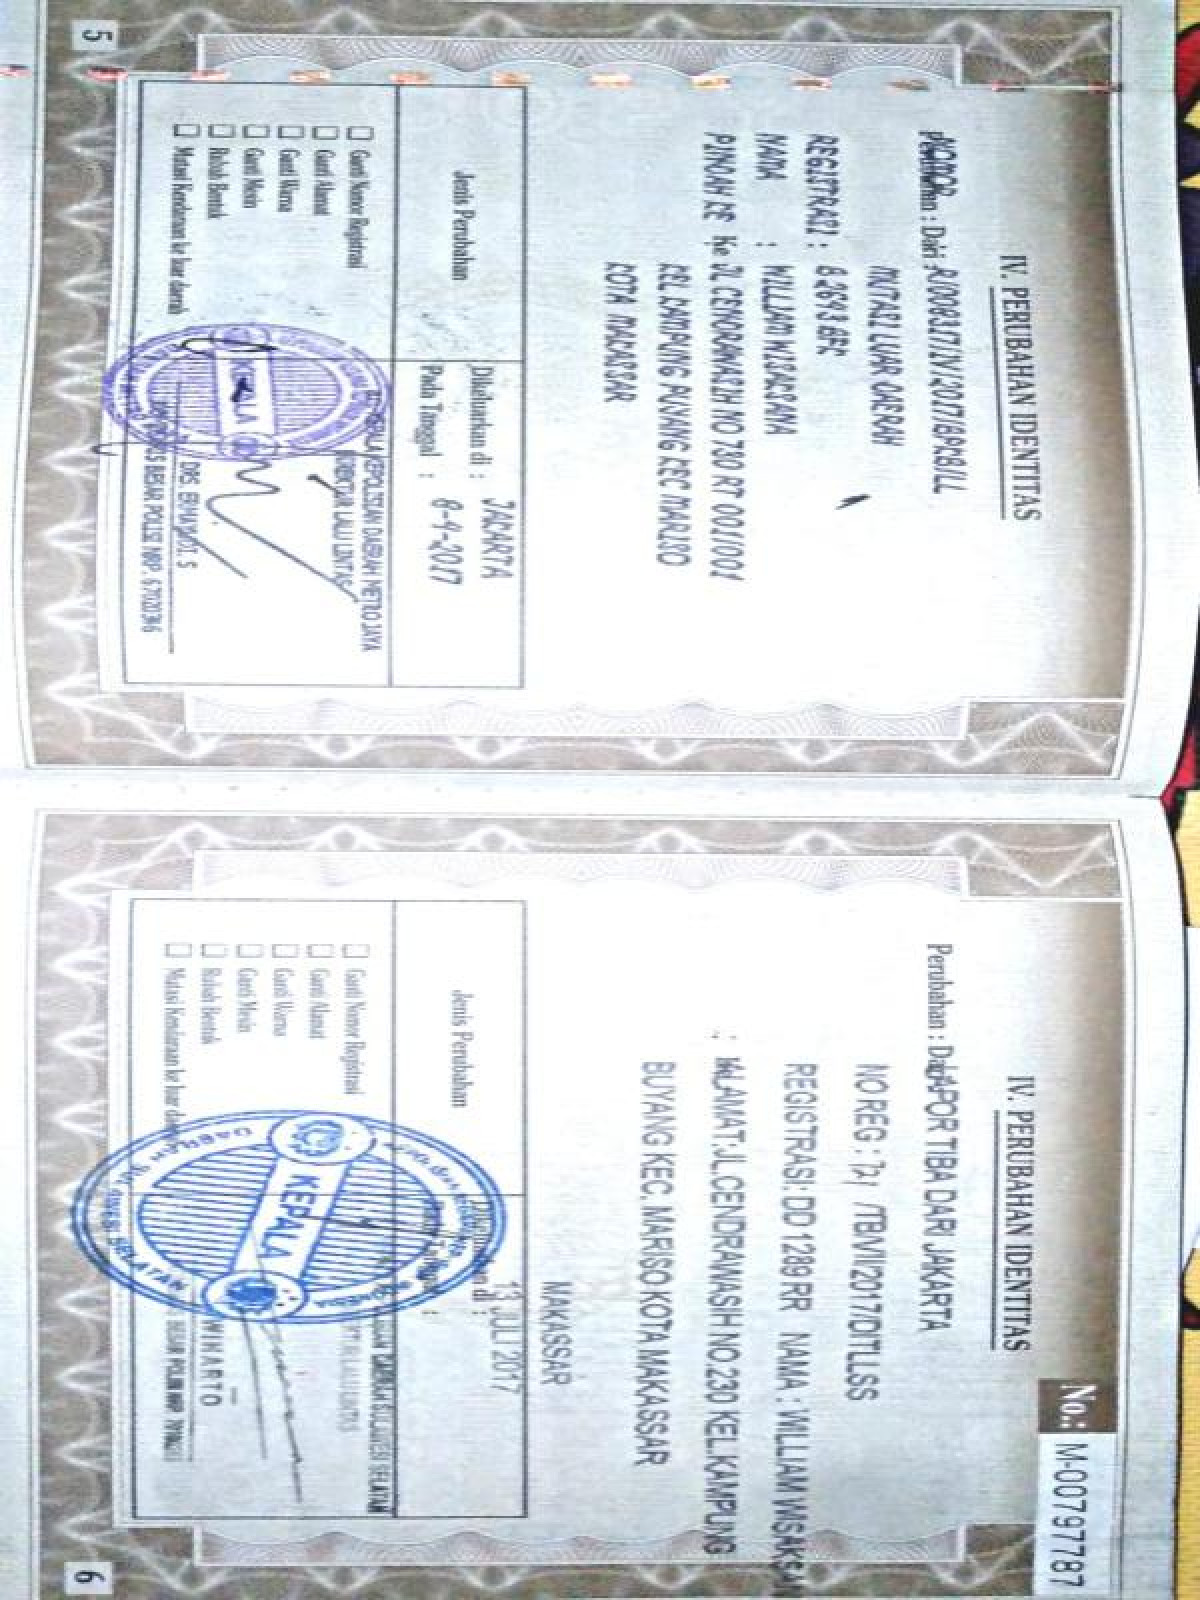 IV. PERUBAHAN IDENTITAS
NOMOR
Perubahan : Dari : R/00837/IV/2017/BPKB/LL
MUTASI LUAR DAERAH
REGISTRASI : B 2693 BFK
NAMA : WILLIAM WISAKSANA
PINDAH KE Ke JL CENDRAWASIH NO 730 RT 001/001
KEL KAMPUNG BUYANG KEC MARISO
KOTA MAKASSAR
Jenis Perubahan
Dikeluarkan di : JAKARTA
Pada Tanggal : 6-4-2017
Ganti Nomor Registrasi
Ganti Alamat
Ganti Warna
Ganti Mesin
Rubah Bentuk
Mutasi Kendaraan ke luar daerah
KEPALA KEPOLISIAN DAERAH METRO JAYA
DIREKTUR LALU LINTAS
KEPALA
DRS. ERMAYUDI. S
KOMISARIS BESAR POLISI NRP.
5
No.: M-00797787
IV. PERUBAHAN IDENTITAS
Perubahan : Dari LAPOR TIBA DARI JAKARTA
NO REG : /TB/VII/2017/DITLLSS
REGISTRASI: DD 1289 RR NAMA : WILLIAM WISAKSANA
: ALAMAT:JL.CENDRAWASIH NO.230 KEL.KAMPUNG
BUYANG KEC. MARISO KOTA MAKASSAR
MAKASSAR
Jenis Perubahan
Dikeluarkan di :
13 JULI 2017
Ganti Nomor Registrasi
Ganti Alamat
Ganti Warna
Ganti Mesin
Rubah Bentuk
Mutasi Kendaraan ke luar daerah
DAERAH SULAWESI SELATAN
KEPALA
BESAR POLISI NRP
6